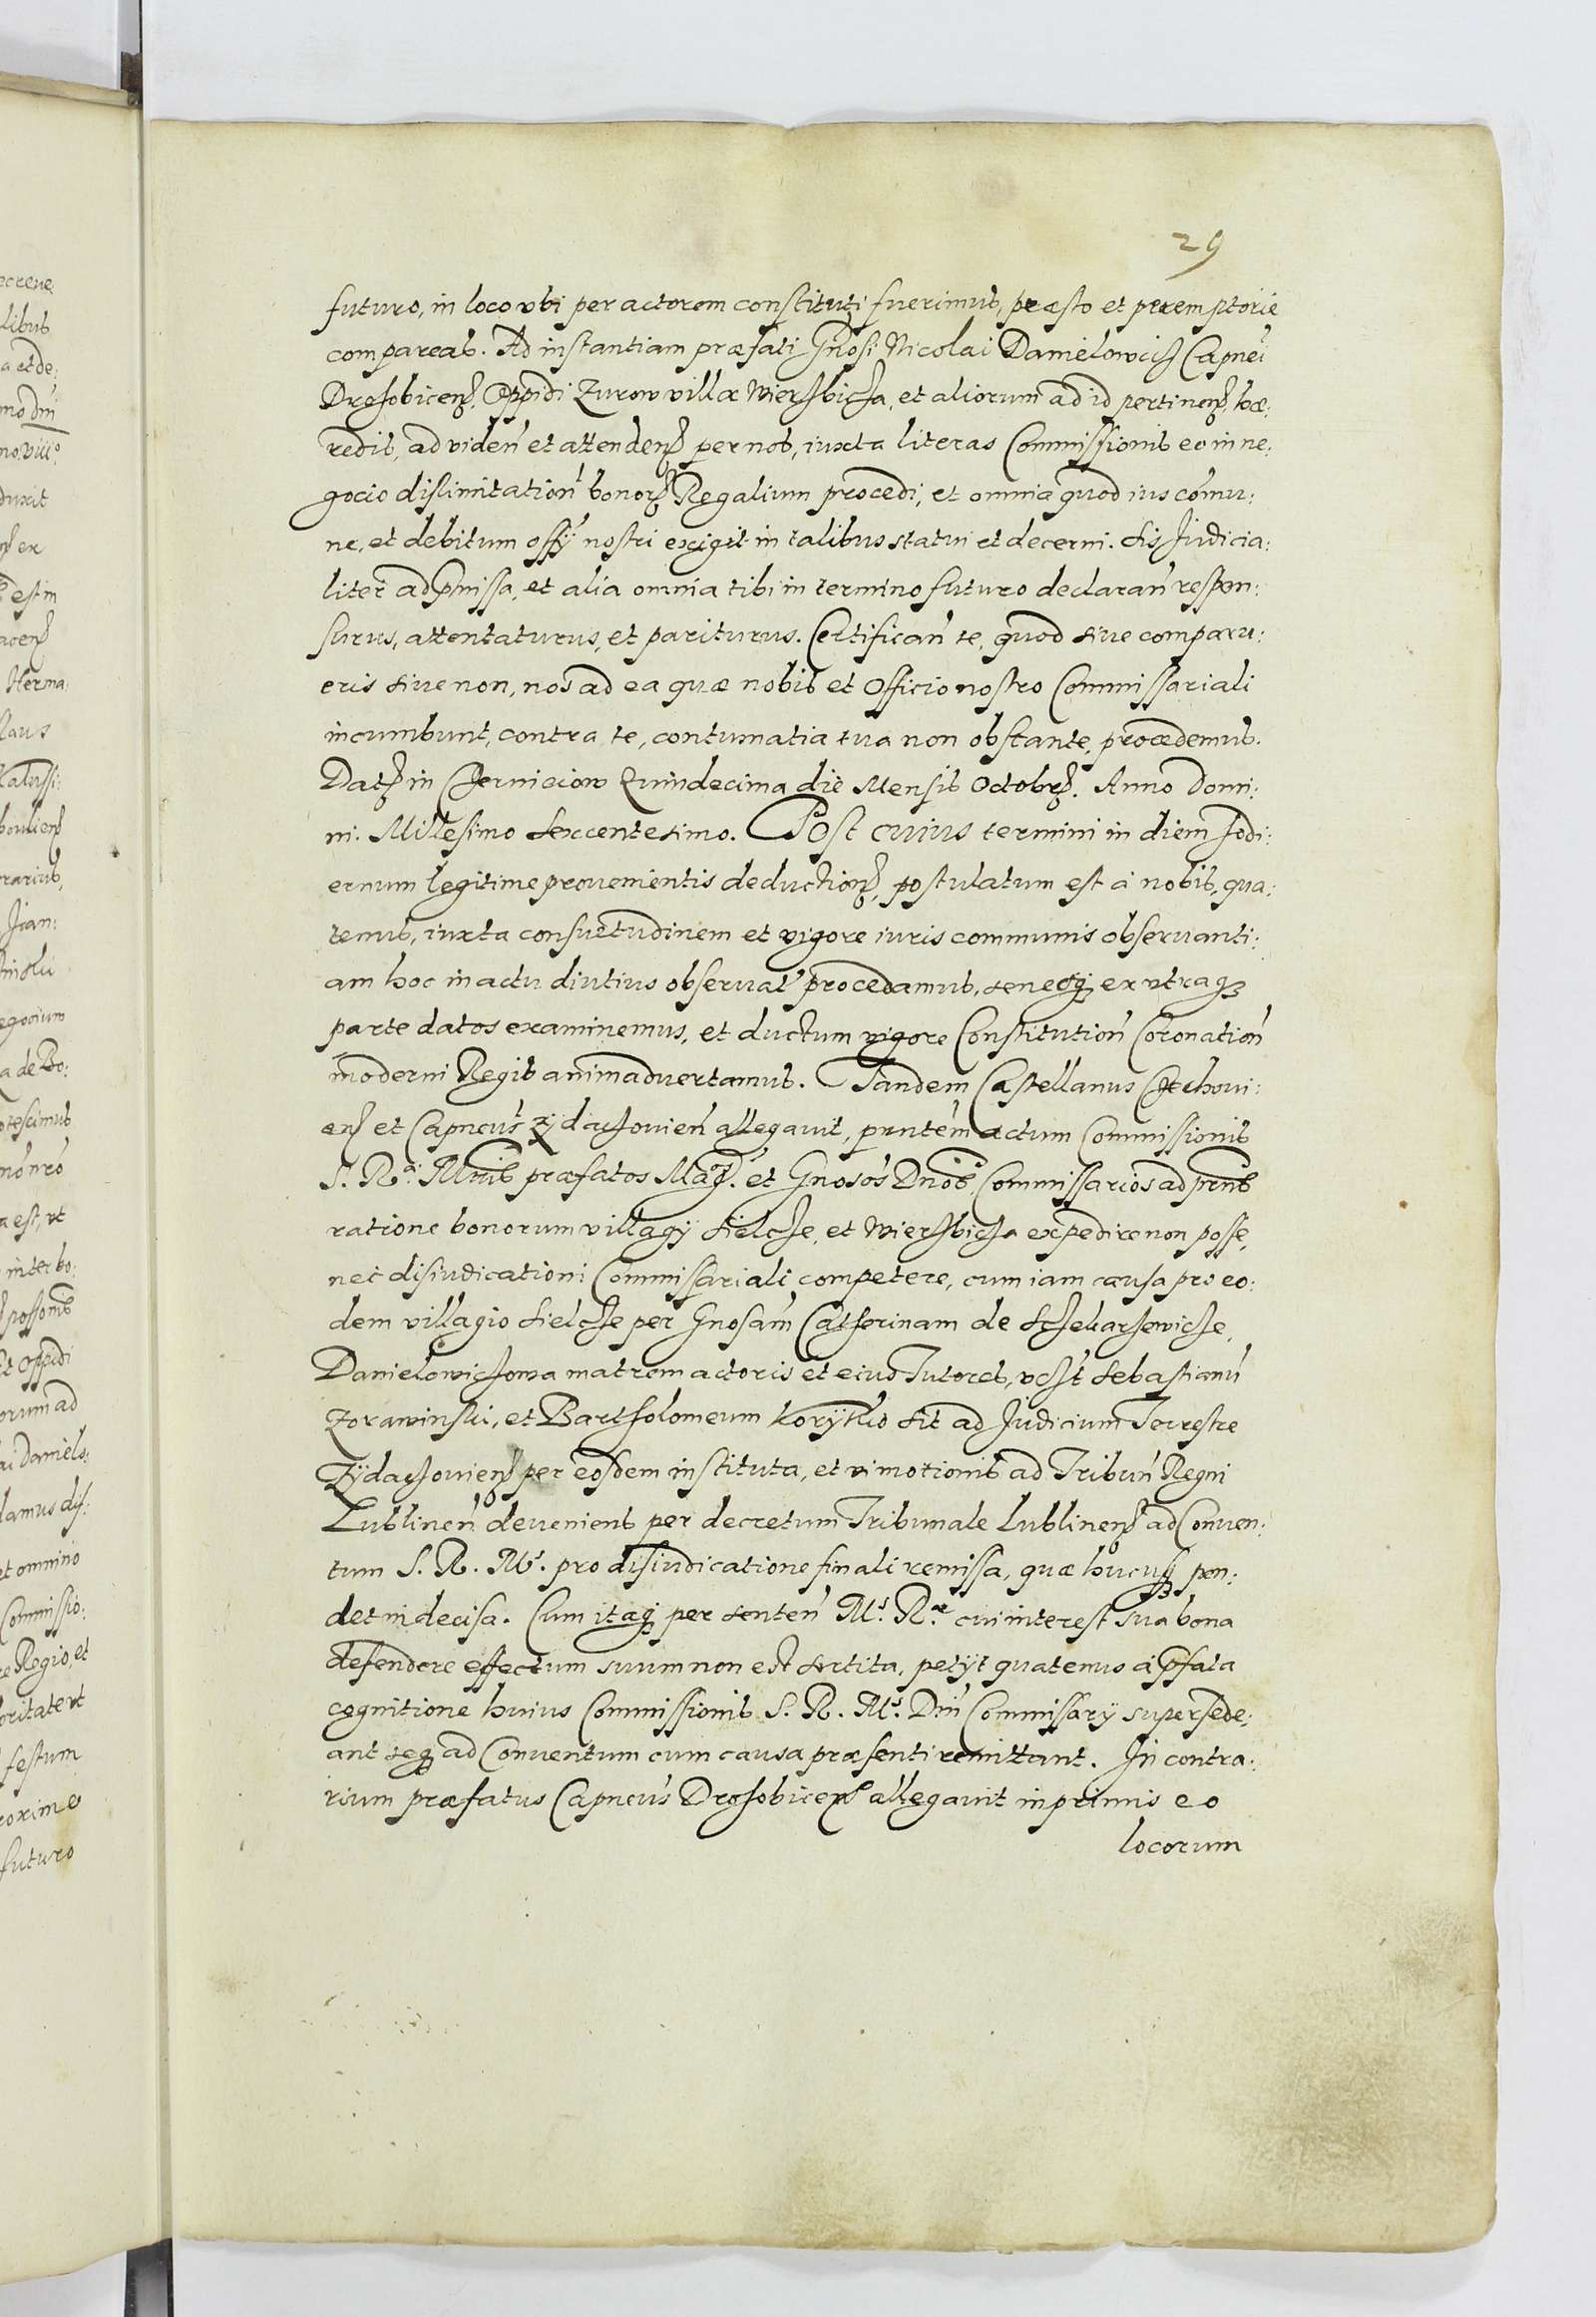 29
futuro, in loco vbi per actorem constituti fuerimus, præsto et peremptorie
compareas. Ad instantiam præfati Gnosi Nicolai Danielowicz Capnei
Drohobicens, Oppidi Zurow villæ Wierzbicza, et aliorum ad id pertinens, hæ:
redis, ad viden et attendens per nos, iuxta literas Commissionis eo in ne:
gocio dislimitation bonor Regalium procedi, et omnia quod ius comu:
ne, et debitum offÿ nostri exigit in talibus statui et decerni. Sis Judicia:
liter ad pmissa, et alia omnia tibi in termino futuro declaran respon:
surus, attentaturus, et pariturus. Certifican te, quod siue comparu:
eris siue non, nos ad ea quæ nobis et Officio nostro Commissariali
incumbunt, contra te, contumatia tua non obstante, procedemus.
Dat in Czernieiow Quindecima die Mensis Octobr. Anno Domi:
ni. Millesimo sexcentesimo. Post cuius termini in diem hodi:
ernum legitime prouenientis deduction, postulatum est a nobis, qua:
tenus, iuxta consuetudinem et vigore iuris communis obseruanti:
am hoc in actu diutius obseruat procedamus, senesq ex vtraq
parte datos examinemus, et ductum vigore Constitution Coronation
moderni Regis animaduertamus. Tandem Castellanus Czechoui:
ens et Capneus Zÿdaczouien allegauit, pnntem actum Commissionis
S. Ræ Mtis præfatos Mag. et Gnosos Dnos Commissarios ad pnns
ratione bonorum villagÿ Sielcze, et Wierzbicza expedire non posse,
nec disiudicationi Commissariali competere, cum iam causa pro eo:
dem villagio Sielcze per Gnosam Catherinam de
Danielowiczowa matrem actoris et eius Tutores, vczt Sebastianu
Zorawinski, et Bartholomeum Korÿtko sit ad Judicium Terrestre
Zÿdaczouiens per eosdem instituta, et vi motionis ad Tribun Regni
Lublinen deueniens per decretum Tribunale Lublinens ad Conuen:
tum S. R. Ms. pro disiudicatione finali remissa, quæ hucusq pen:
det indecisa. Cum itaq per senten Ms. Ræ cui interest sua bona
defendere effectum suum non est sortita, petÿt quatenus a pfata
cognitione huius Commissionis S. R. Ms. Dni Commissarÿ supersede:
ant seq ad Conuentum cum causa præsenti remittant. In contra:
rium præfatus Capneus Drohobicens allegauit inprimis eo
locorum